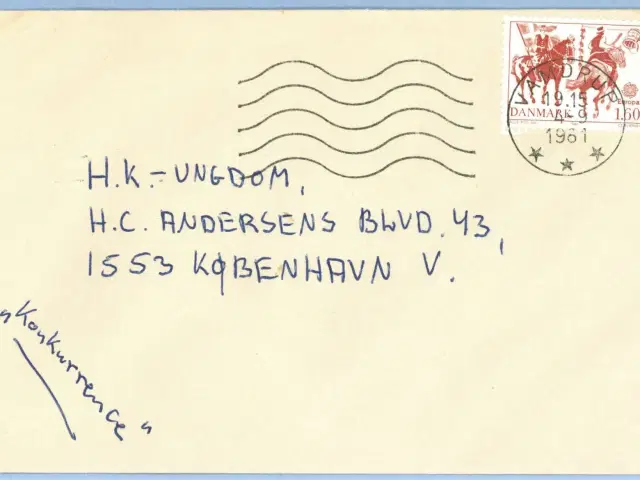 VAMDRUP
19.15
4-9
1981
EUROPA
DANMARK 1.60
H.K.-UNGDOM,
H.C. ANDERSENS BLVD. 43,
1553 KØBENHAVN V.
"Konkurrence"